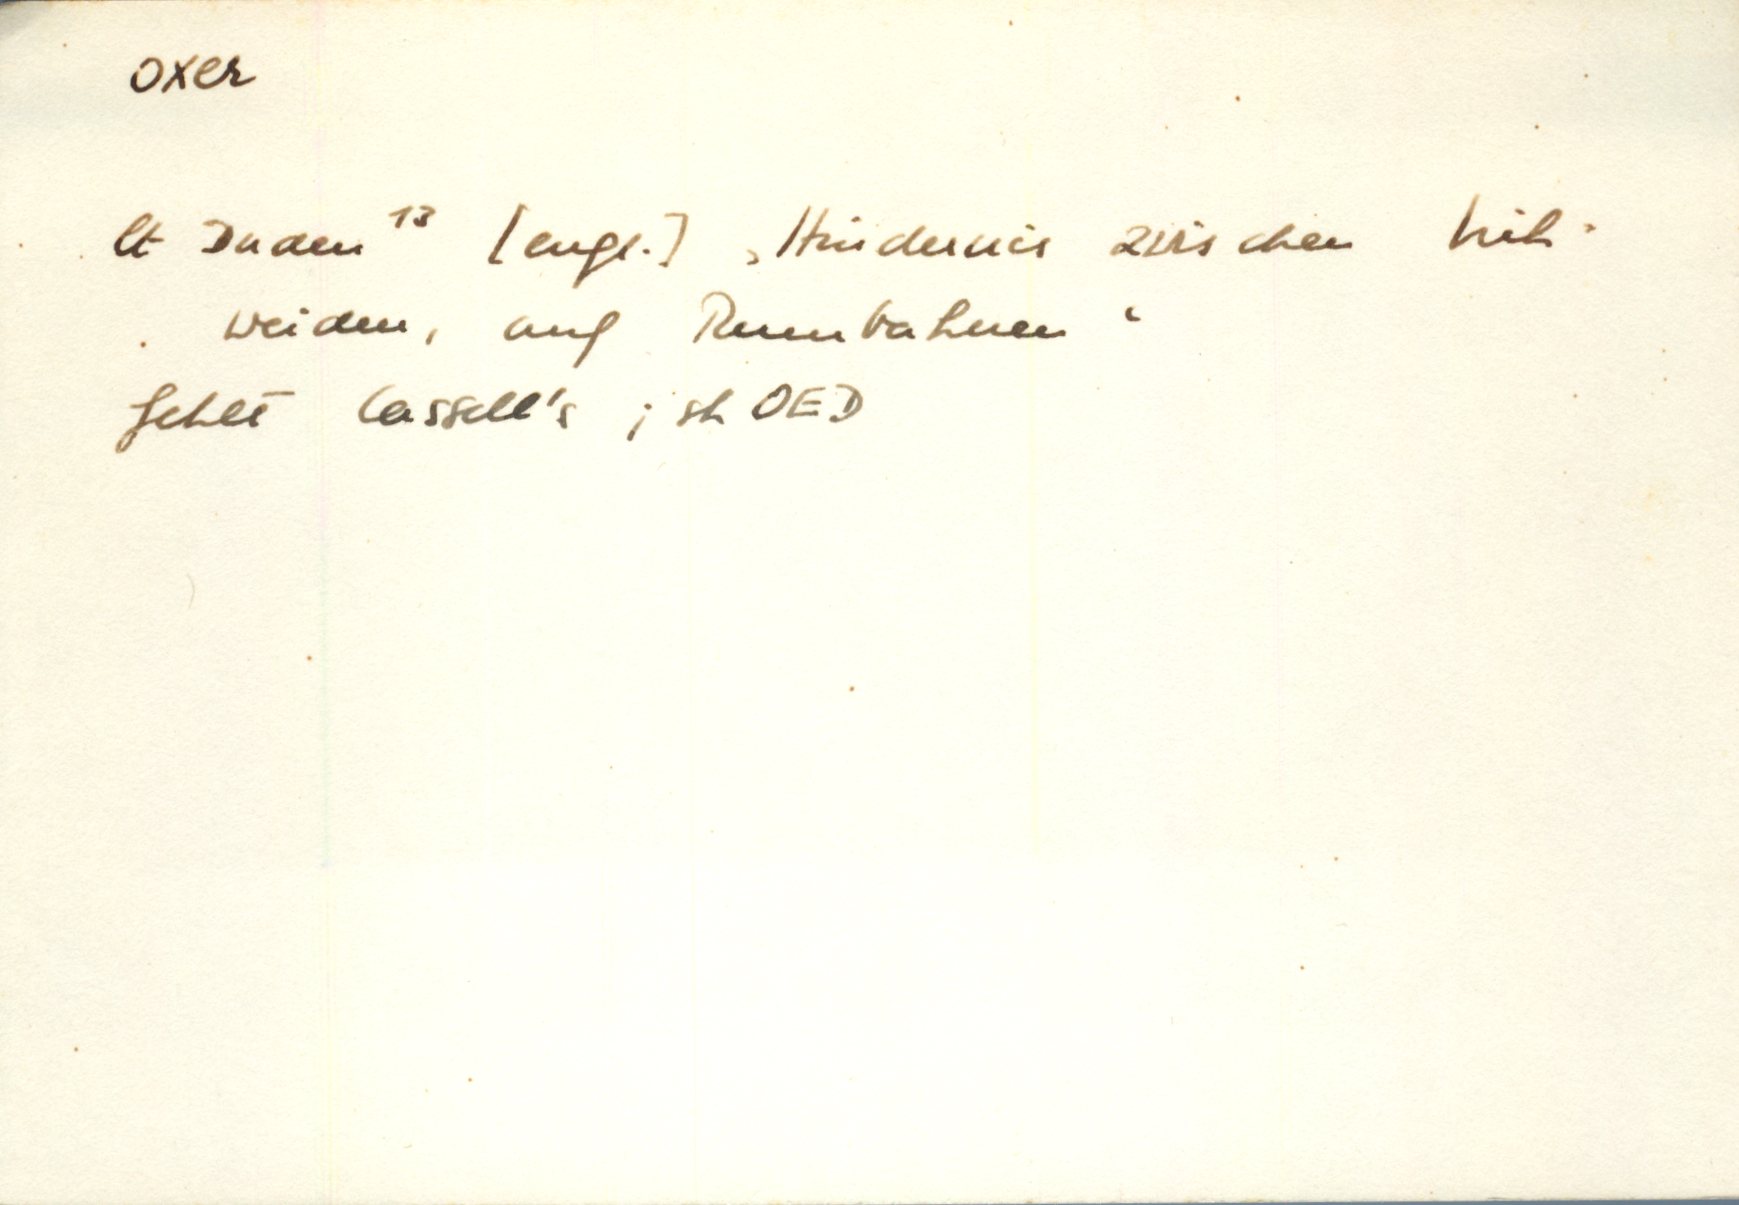 Oxer
lt Duden¹³ [engl.] ‚Hindernis zwischen Vieh-
weiden, auf Rennbahnen‘
fehlt Cassell's ; sh OED